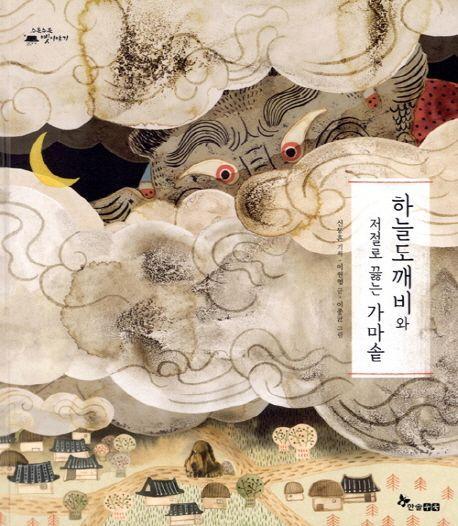 소곤소곤
옛이야기
하늘도깨비와
저절로 끓는 가마솥
신동흔 기획 · 이원영 글 · 이종균 그림
한솔수북